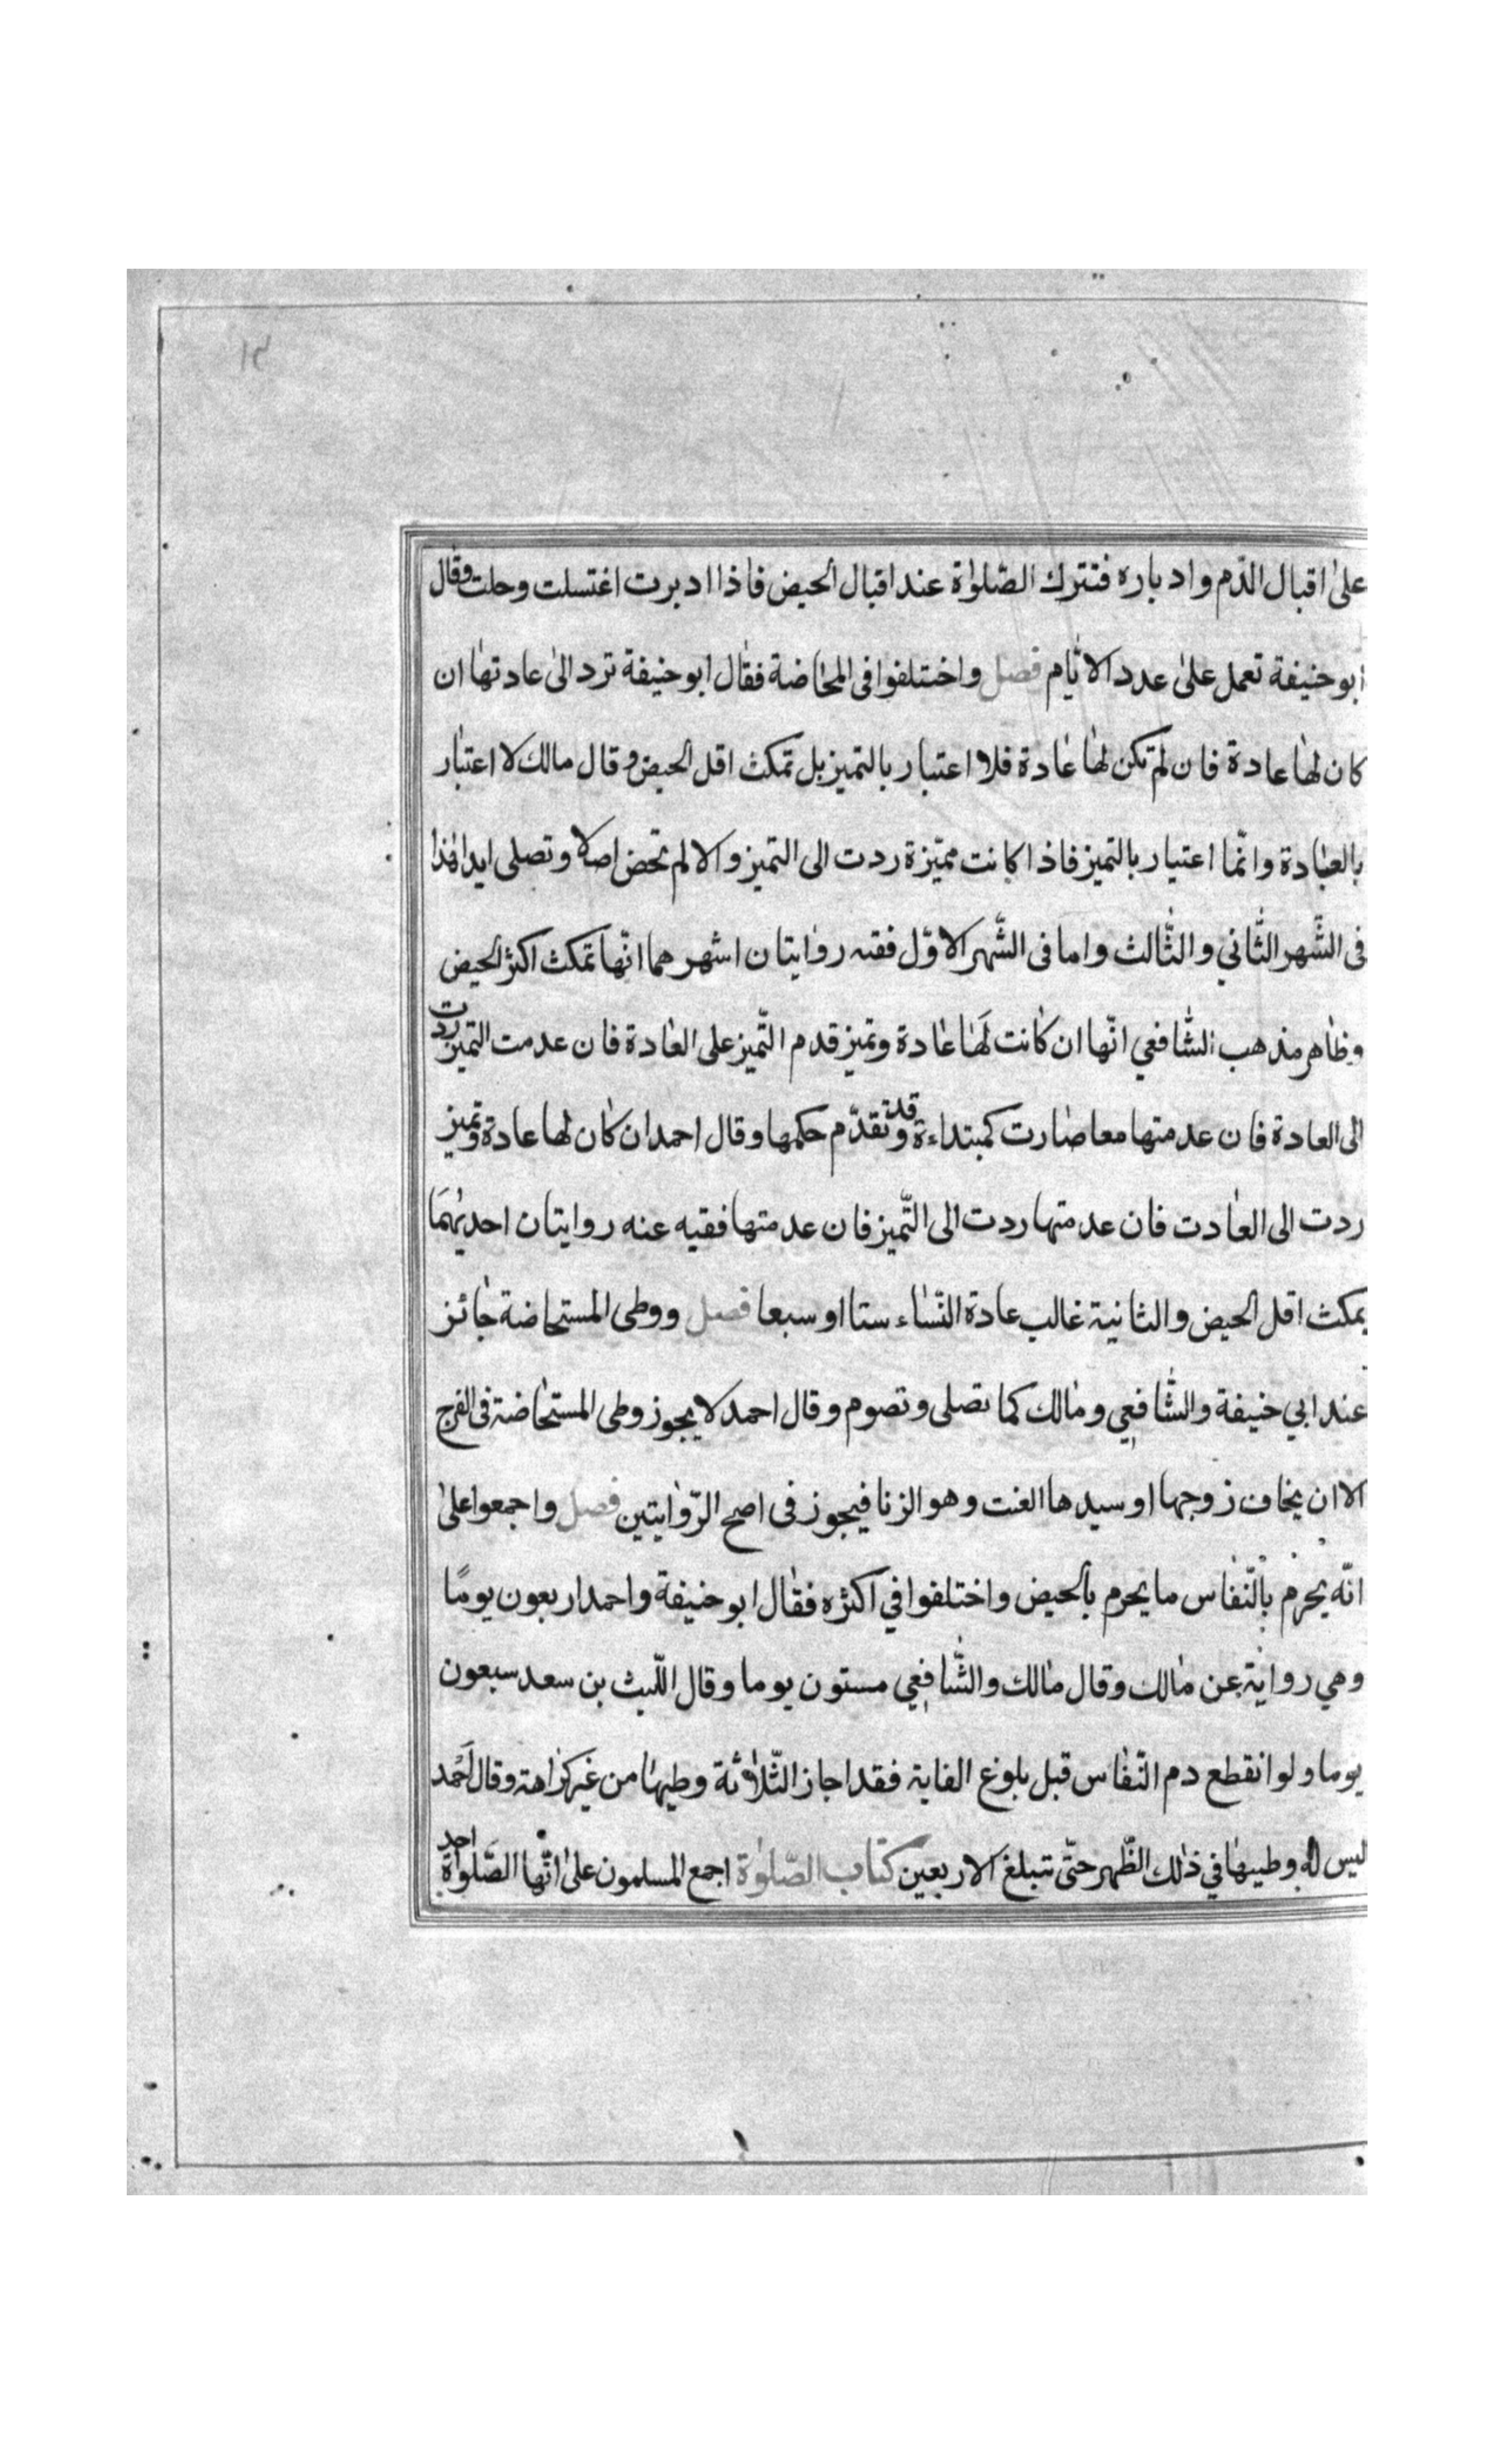 ١٣
على اقبال الدّم وادباره فتترك الصّلوٰة عند اقبال الحيض فاذا ادبرت اغتسلت وحلت وقال
ابو حنيفة تعمل على عدد الايّام فصل واختلفوا فى المحاضة فقال ابو حنيفة ترد الى عادتها ان
كان لها عادة فان لم تكن لها عادة فلا اعتبار بالتميز بل تمكث اقل الحيض وقال مالك لا اعتبار
بالعادة وانّما اعتبار بالتميز فاذا كانت مميّزة ردت الى التميز والا لم تحض اصلا وتصلى ابدا هذا
فى الشّهر الثّاني والثّالث واما فى الشّهر الاوّل ففته روايتان اشهرهما انّها تمكث اكثر الحيض
وظاهر مذهب الشّافعي انّها ان كانت لَها عادة وتميز قدم التّميز على العادة فان عدمت التميز ردت
الى العادة فان عدمتها معا صارت كمبتداءة وقد تقدّم حكمها وقال احمد ان كان لها عادة وتميز
ردت الى العادت فان عدمتها ردت الى التّميز فان عدمتها فقيه عنه روايتان احديهمَا
يمكث اقل الحيض والثانية غالب عادة النّساء ستا او سبعا فصل ووطى المستحاضة جائز
عند ابي حنيفة والشّافعي ومالك كما تصلى وتصوم وقال احمد لا يجوز وطى المستحاضة فى الفرج
الا ان يخاف زوجها او سيدها العنت وهو الزنا فيجوز فى اصح الرّوايتين فصل واجمعوا على
انّه يحرم بالنّفاس ما يحرم بالحيض واختلفوا في اكثره فقال ابو حنيفة واحمد اربعون يومًا
وهي رواية عن مالك وقال مالك والشّافعي مستون يوما وقال اللّيث بن سعد سبعون
يوما ولو انقطع دم النّفاس قبل بلوغ الغاية فقد اجاز الثّلاثة وطيها من غير كراهة وقال احمد
ليس له وطيها في ذلك الظّهر حتّى تتبلغ الاربعين كتاب الصّلوٰة اجمع المسلمون على انّها الصّلوٰة احد